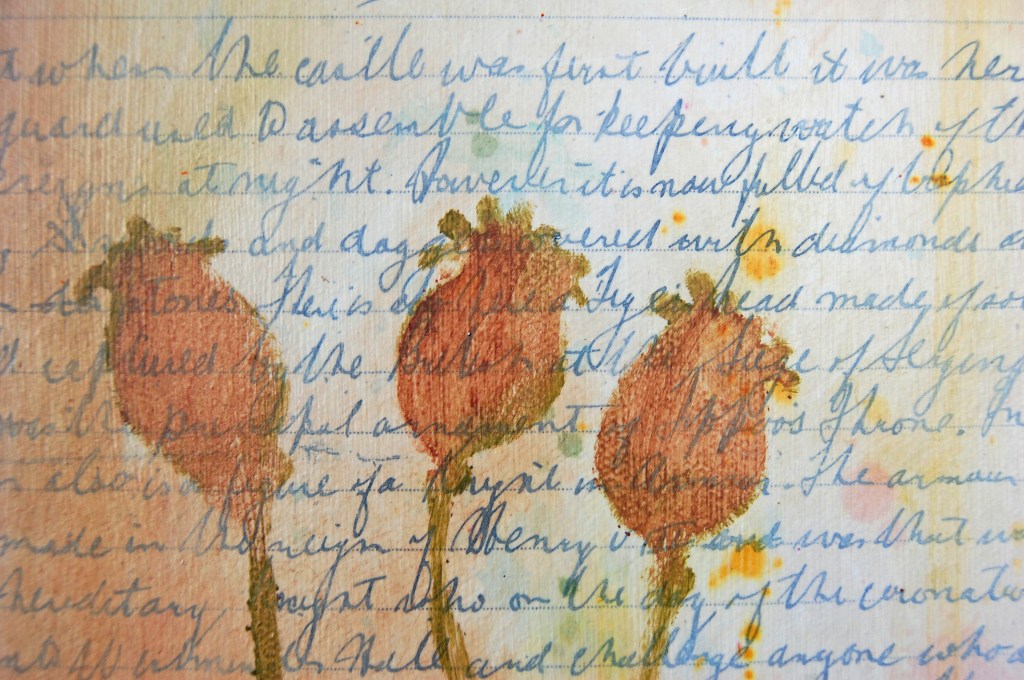 when the castle was first built it was her
guard used to assemble for keeping watch of th
at night. However it is now filled of
and daggers covered with diamonds
stones. There is also here a Tiger head made of so
captured by the British at the Siege of
the principal ornament of Throne. In
also is a figure of a Knight in Armour. The armour
made in the reign of Henry and was that
hereditary Knight who on the day of the coronatio
Hall and challenge anyone who